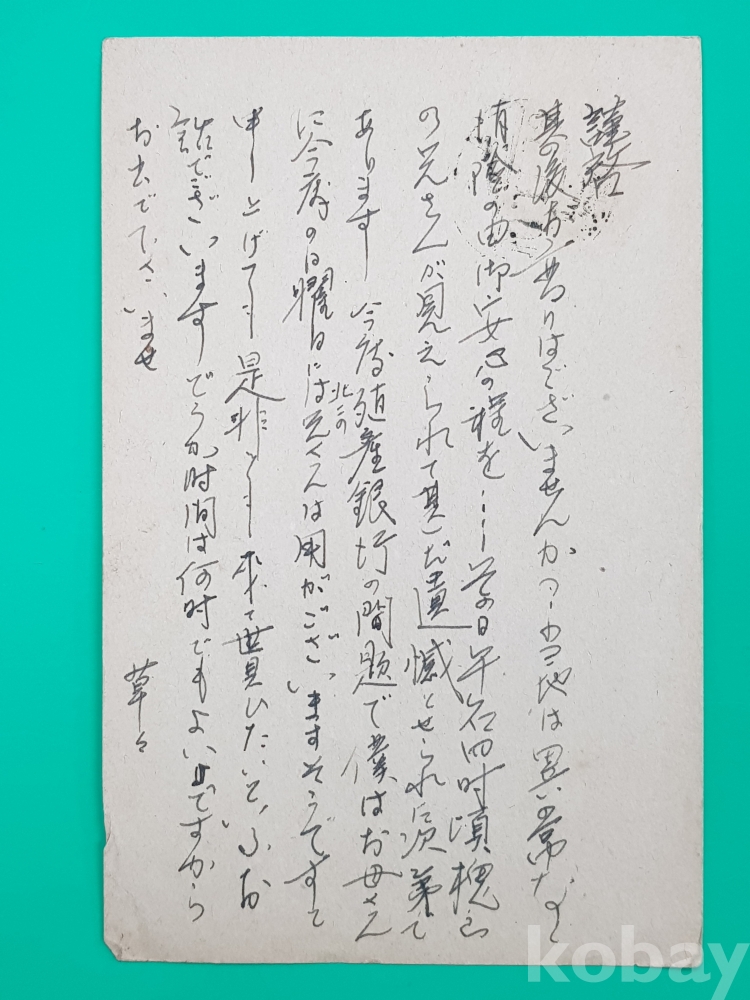 謹啓
其の後お変りはございませんか 当地は異常なく
御安心の程を……当日午后四時頃槐山
の兄さんが見えられて甚だ遺憾とせられた次第で
あります 今度殖産銀行の問題で僕はお母さん
北との
に今度の日曜日には兄さんは用がございますそうですて
申し上げても是非とも来て貰ひたいといふお
話でございます どうか時間は何時でもよいですから
お出で下さいませ
草々
kobay